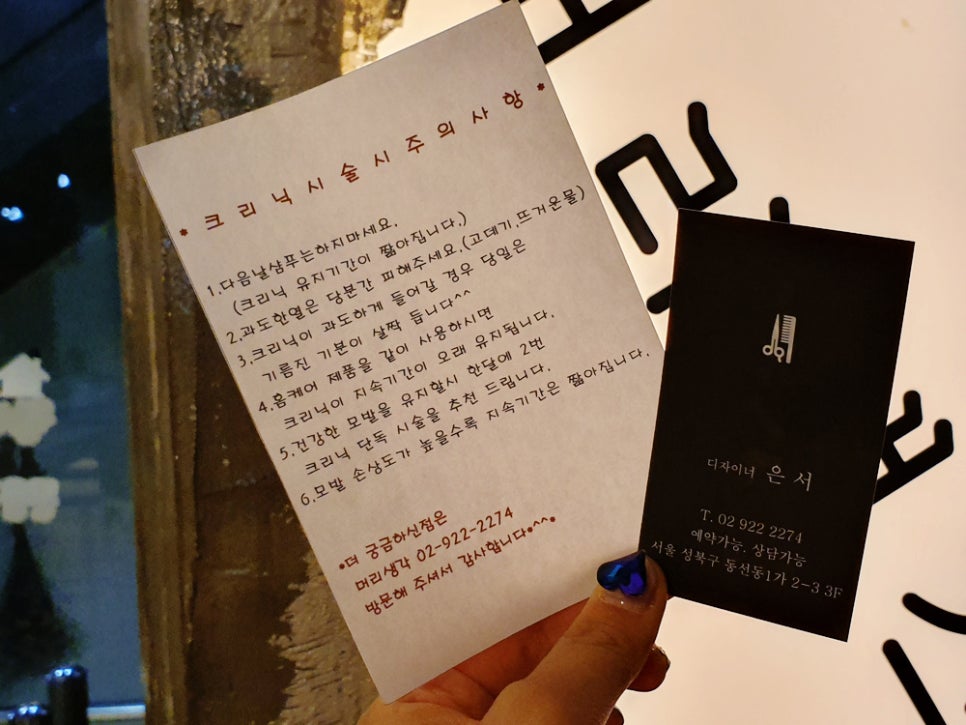 * 크 리 닉 시 술 시 주 의 사 항 *
1.다음날샴푸는하지마세요.
(크리닉 유지기간이 짧아집니다.)
2.과도한열은 당분간 피해주세요.(고데기,뜨거운물)
3.크리닉이 과도하게 들어갈 경우 당일은
기름진 기분이 살짝 듭니다^^
4.홈케어 제품을 같이 사용하시면
크리닉이 지속기간이 오래 유지됩니다.
5.건강한 모발을 유지할시 한달에 2번
크리닉 단독 시술을 추천 드립니다.
6.모발 손상도가 높을수록 지속기간은 짧아집니다.
•더 궁금하신점은
머리생각 02-922-2274
방문해 주셔서 감사합니다•^^•
디자이너 은서
T. 02 922 2274
예약가능. 상담가능
서울 성북구 동선동1가 2-3 3F